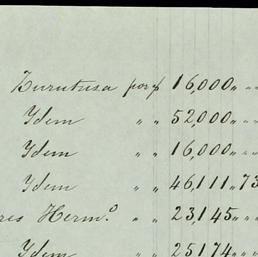 Zurutusa por $ 16,000 " "
Ydem " " 52,000 " "
Ydem " " 16,000 " "
Ydem " " 46,111 " 73
res Herm.º " " 23,145 " "
Ydem " " 25,174 " "